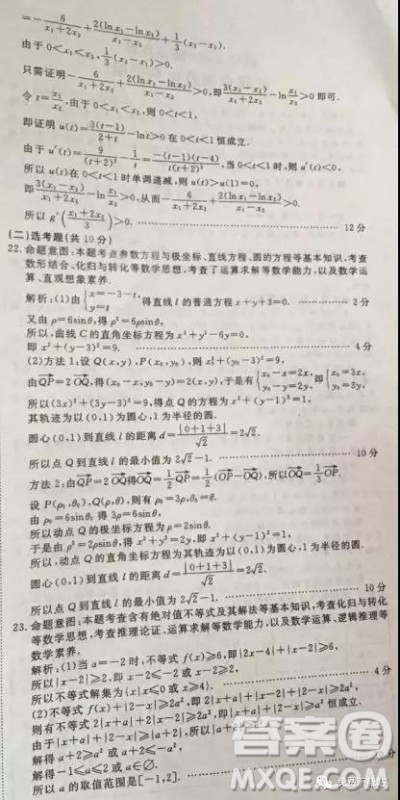 =-6/(x₁+2x₂)+2(lnx₁-lnx₂)/(x₁-x₂)+1/3(x₂-x₁).
由于0<x₁<x₂,1/3(x₂-x₁)>0.
只需证明-6/(x₁+2x₂)+2(lnx₁-lnx₂)/(x₁-x₂)>0,即3(x₁-x₂)/(x₁+2x₂)-ln x₁/x₂>0即可.
令t=x₁/x₂,由于0<x₁<x₂,则0<t<1.
即证明u(t)=3(t-1)/(2+t)-lnt>0在0<t<1恒成立.
由于u′(t)=9/(t+2)²-1/t=-(t-1)(t-4)/t(t+2)²,当0<t<1时,则u′(t)<0,
所以u(t)在0<t<1时单调递减,则u(t)>u(1)=0,
即3(x₁-x₂)/(x₁+2x₂)-ln x₁/x₂>0,从而-6/(x₁+2x₂)+2(lnx₁-lnx₂)/(x₁-x₂)>0.
所以g′((x₁+2x₂)/3)>0. 12分
(二)选考题(共10分)
22.命题意图:本题考查参数方程与极坐标、直线方程、圆的方程等基本知识,考查
数形结合、化归与转化等数学思想,考查了运算求解等数学能力,以及数学运
算、直观想象素养.
解析:(1)由{x=-3-t, y=t 得直线l的普通方程x+y+3=0. 2分
又由ρ=6sinθ,得ρ²=6ρsinθ,
所以,曲线C的直角坐标方程为x²+y²-6y=0,
即x²+(y-3)²=9. 4分
(2)方法1:设Q(x,y),P(x₀,y₀),则x₀²+(y₀-3)²=9,
由QP=2OQ,得(x₀-x,y₀-y)=2(x,y),于是有{x₀-x=2x, y₀-y=2y, 即{x₀=3x, y₀=3y,
所以(3x)²+(3y-3)²=9,得点Q的方程为x²+(y-1)²=1,
其轨迹为以(0,1)为圆心,1为半径的圆.
圆心(0,1)到直线l的距离d=|0+1+3|/√2=2√2.
所以点Q到直线l的最小值为2√2-1. 10分
方法2:由QP=2OQ得OQ=1/2QP=1/2(OP-OQ),所以OQ=1/3OP.
设P(ρ₀,θ₀),Q(ρ,θ),则有ρ₀=3ρ,θ₀=θ.
由ρ₀=6sinθ₀得3ρ=6sinθ,
所以动点Q的极坐标方程为ρ=2sinθ.
于是由ρ²=2ρsinθ,得x²+y²=2y,即x²+(y-1)²=1,
所以,动点Q的直角坐标方程为其轨迹为以(0,1)为圆心,1为半径的圆.
圆心(0,1)到直线l的距离d=|0+1+3|/√2=2√2.
所以点Q到直线l的最小值为2√2-1. 10分
23.命题意图:本题考查含有绝对值不等式及其解法等基本知识,考查化归与转化
等数学思想,考查推理论证、运算求解等数学能力,以及数学运算、逻辑推理等
数学素养.
解析:(1)当a=-2时,不等式f(x)≥6,即|2x-4|+|x-2|≥6,
所以|x-2|≥2,即x-2≤-2或x-2≥2,
所以不等式解集为{x|x≤0或x≥4}. 4分
(2)不等式f(x)+|2-x|≥2a²,即2|x+a|+|x-2|+|2-x|≥2a²,
则有不等式2|x+a|+2|x-2|≥2a²,即|x+a|+|x-2|≥a²恒成立.
由于|x+a|+|x-2|≥|a+2|,所以|a+2|≥a²,
解得a+2≥a²或a+2≤-a²,
解得-1≤a≤2或a∈∅.
所以a的取值范围是[-1,2].
答案圈
MXQE.COM